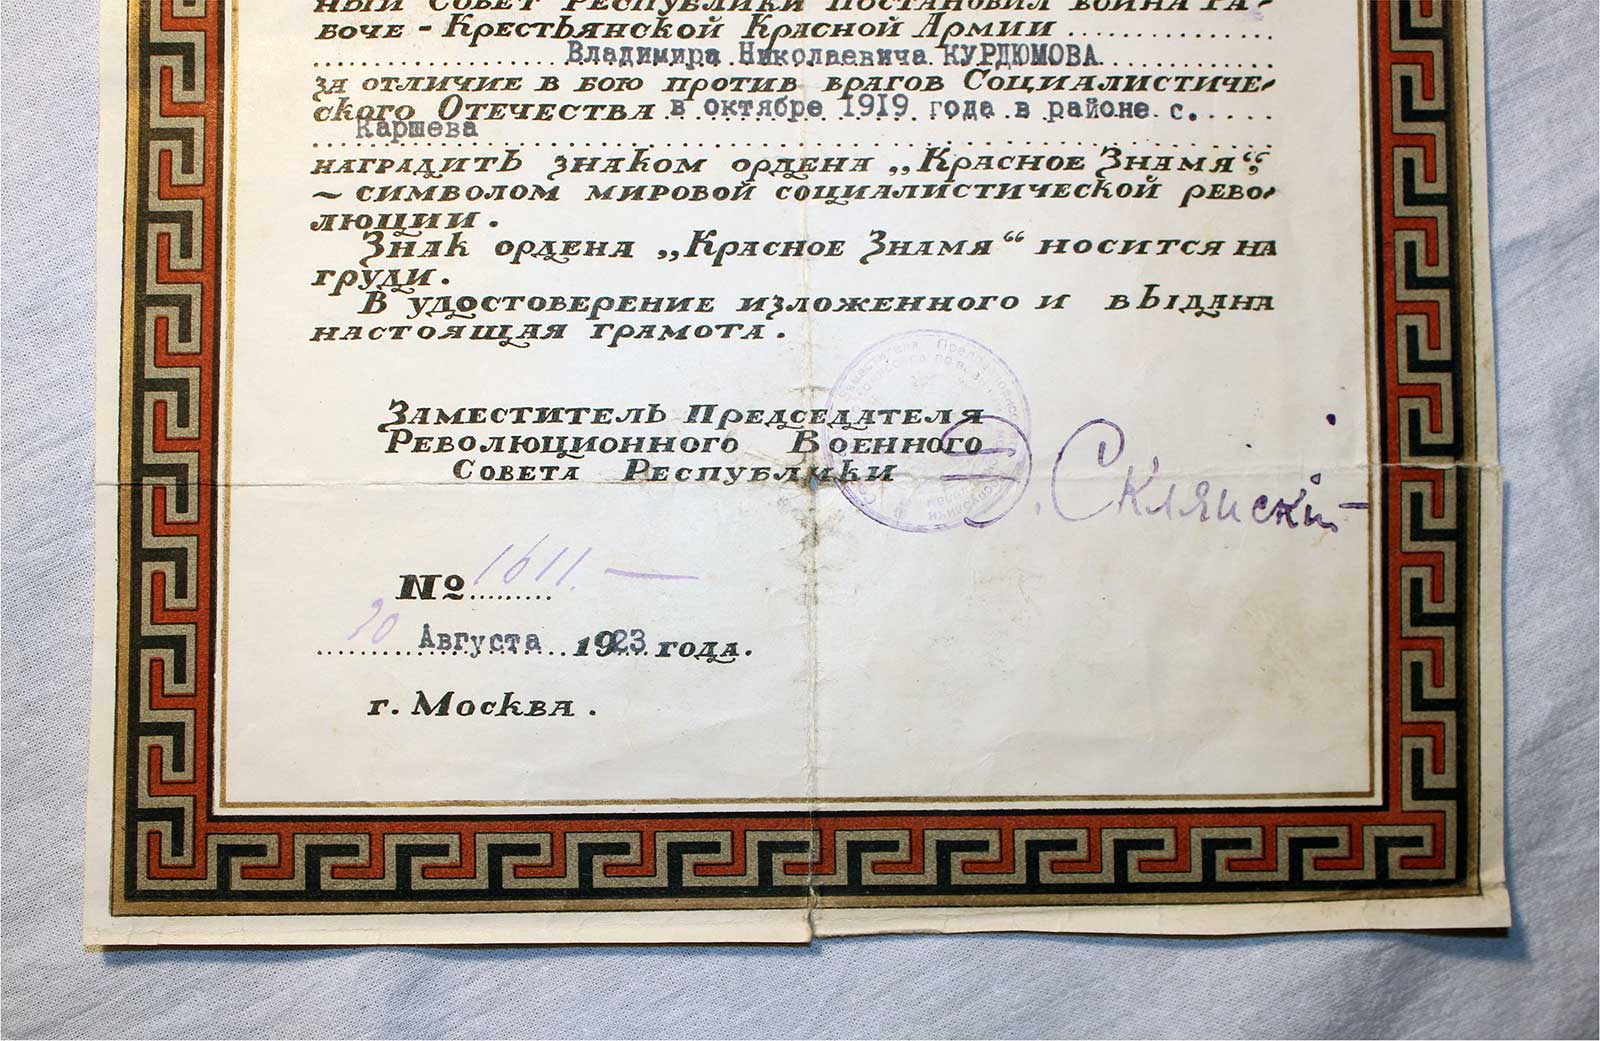 ный Совет Республики постановил воина Ра-
боче-Крестьянской Красной Армии
Владимира Николаевича КУРДЮМОВА
за отличие в бою против врагов Социалистиче-
ского Отечества в октябре 1919 года в районе с.
Каршева
наградить знаком ордена „Красное Знамя“,
~ символом мировой социалистической рево-
люции.
Знак ордена „Красное Знамя“ носится на
груди.
В удостоверение изложенного и выдана
настоящая грамота.
Заместитель Председателя
Революционного Военного
Совета Республики
Склянский
№ 1611.—
20 Августа 1923 года.
г. Москва.